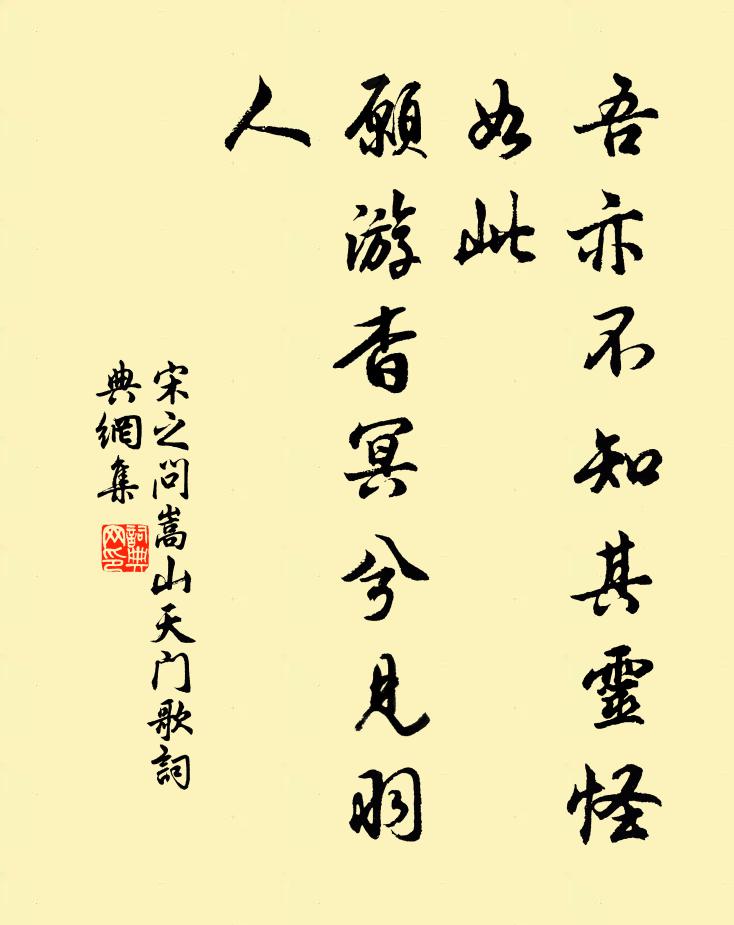 吾亦不知其靈怪
如此
願游杳冥兮見羽
人
宋之问嵩山天门歌詞
典網集
詞典
网印